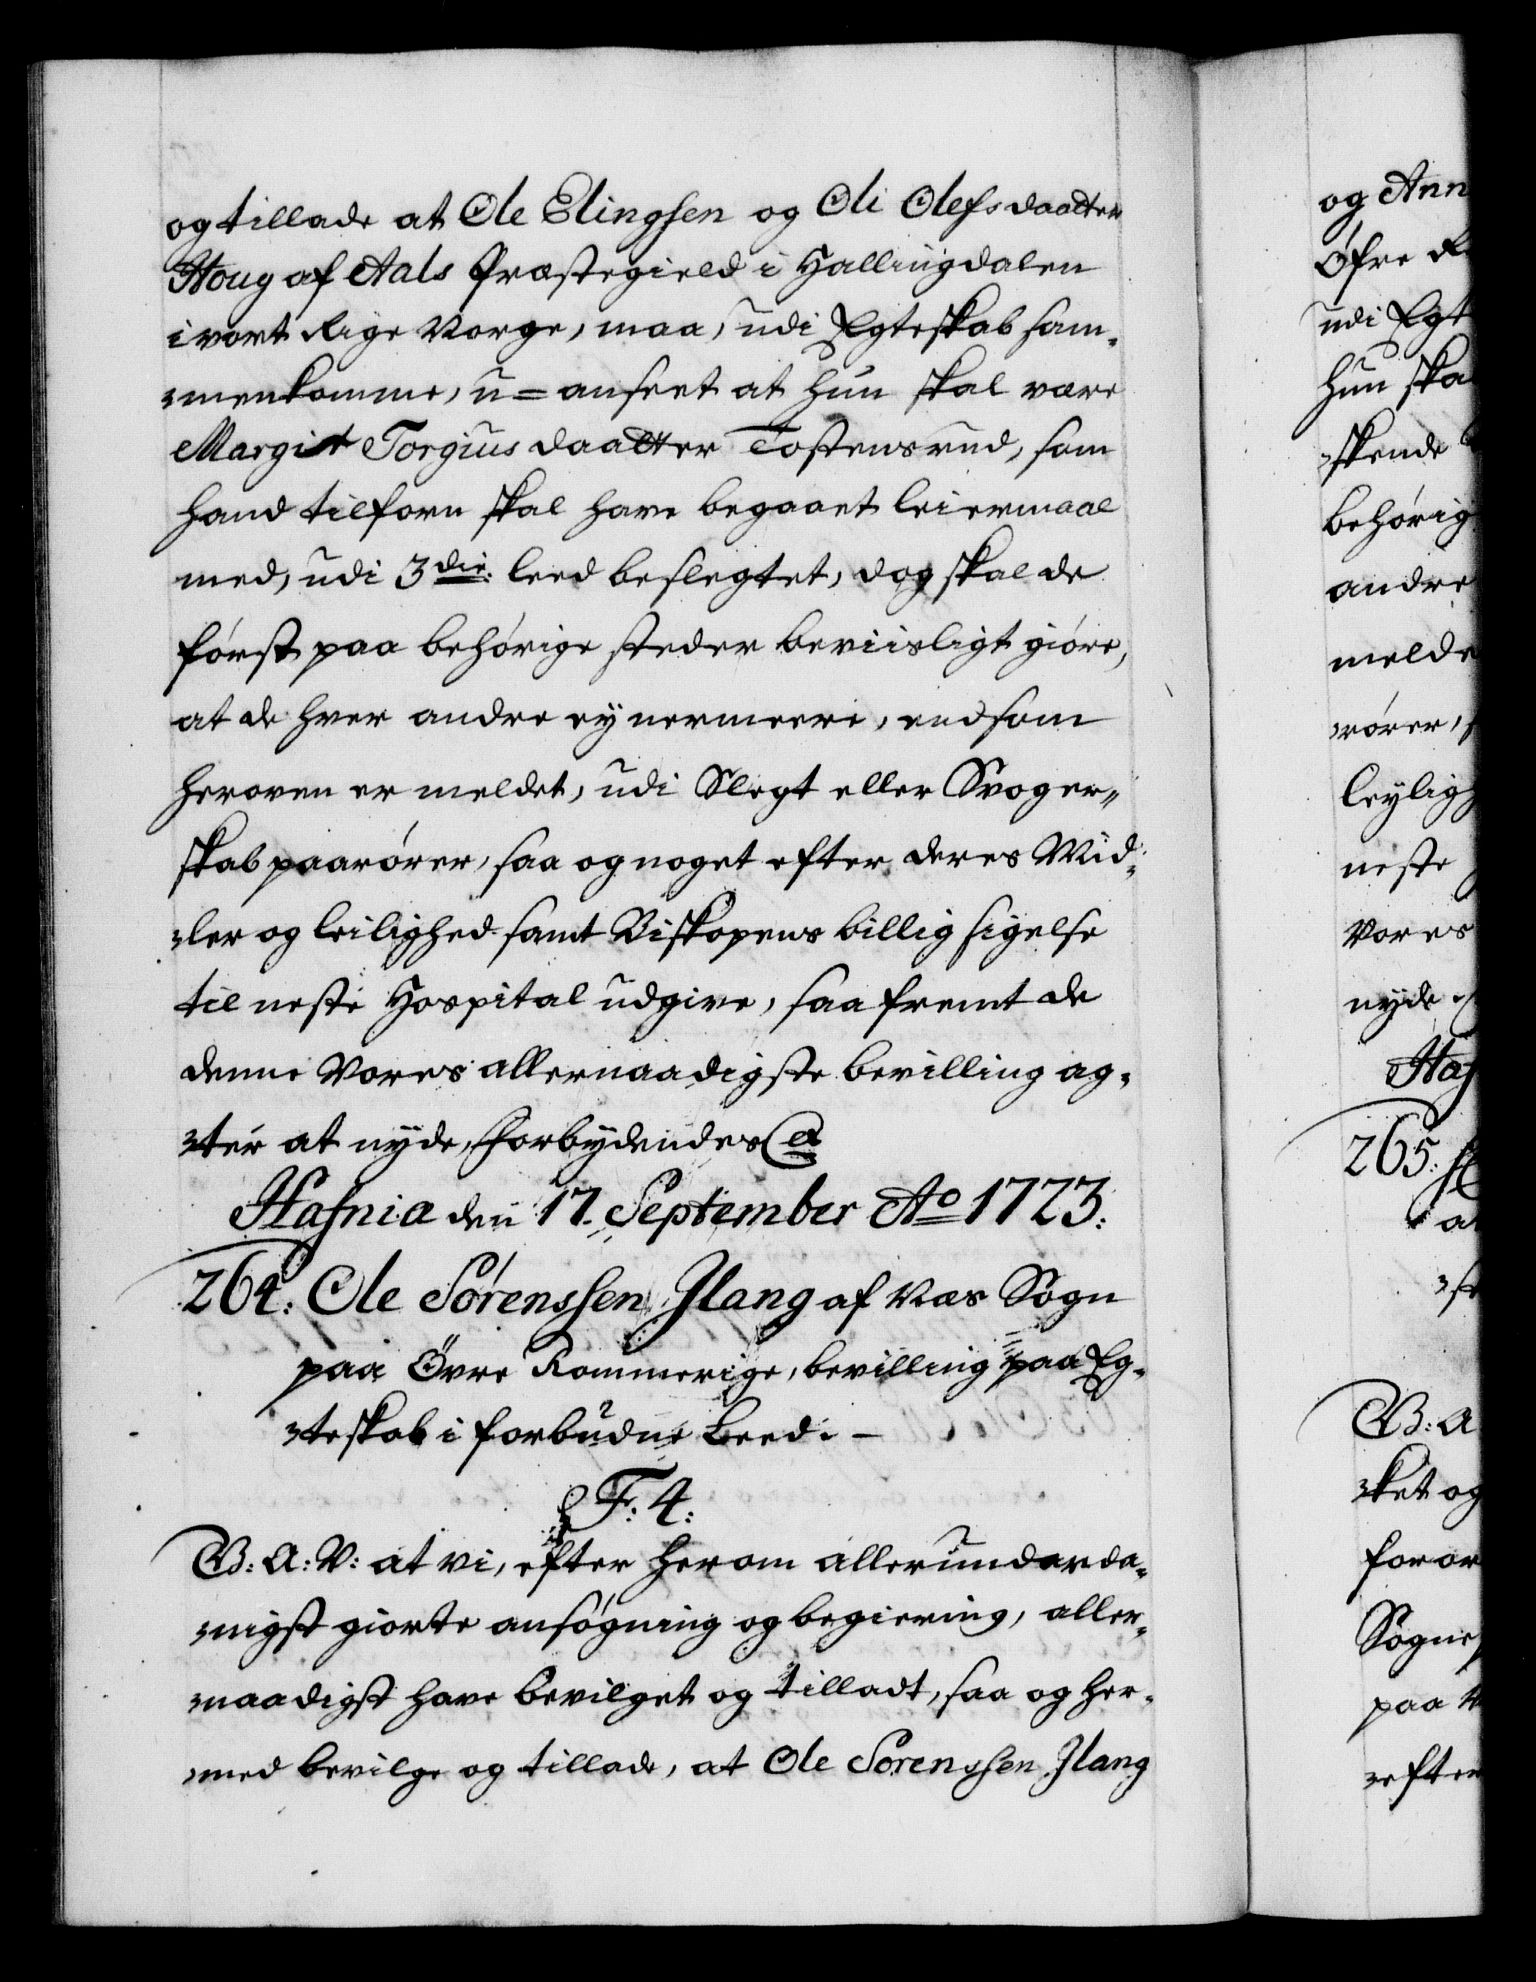 og tillade at Ole Elingsen og Oli Olefs daatter
Houg af Aals Præstegield i Hallingdalen
i vort Rige Norge, maa, udi Egteskab sam¬
menkomme, u=anseet at hun skal være
Margit Torgiusdaatter Tostensrud, som
hand tilforn skal have begaaet leiermaal
med, udi 3die: leed beslegtet, dog skal de
först paa behörige steder beviisligt giöre,
at de hver andre ey nermeere, end som
heroven er meldet, udi Slegt eller Svoger¬
skab paarörer, saa og noget efter deres Mid¬
ler og leilighed samt Biskopens billig sigelse
til neste Hospital udgive, saa fremt de
denne Vores allernaadigste bevilling ag¬
ter at nyde, Forbydendes &
Hafnia den 17. September Ao 1723:
264: Ole Sörenssen Ilang af Næs Sogn
paa Övre Rommerige, bevilling paa Eg¬
teskab i forbudne Leed. —
F. 4:
G: A: V: at vi, efter herom allerunderda¬
nigst giorte ansögning og begiering, aller¬
naadigst have bevilget og tilladt, saa og her¬
med bevilge og tillade, at Ole Sörenssen Ilang
og Ann
Öfre R
udi Egt
hun ska
skende
behörig
andre
melde
rörer,
leylig
neste
Vores
nyde
Haf
265:
G: A
ket og
foror
Sogne
paa
efter